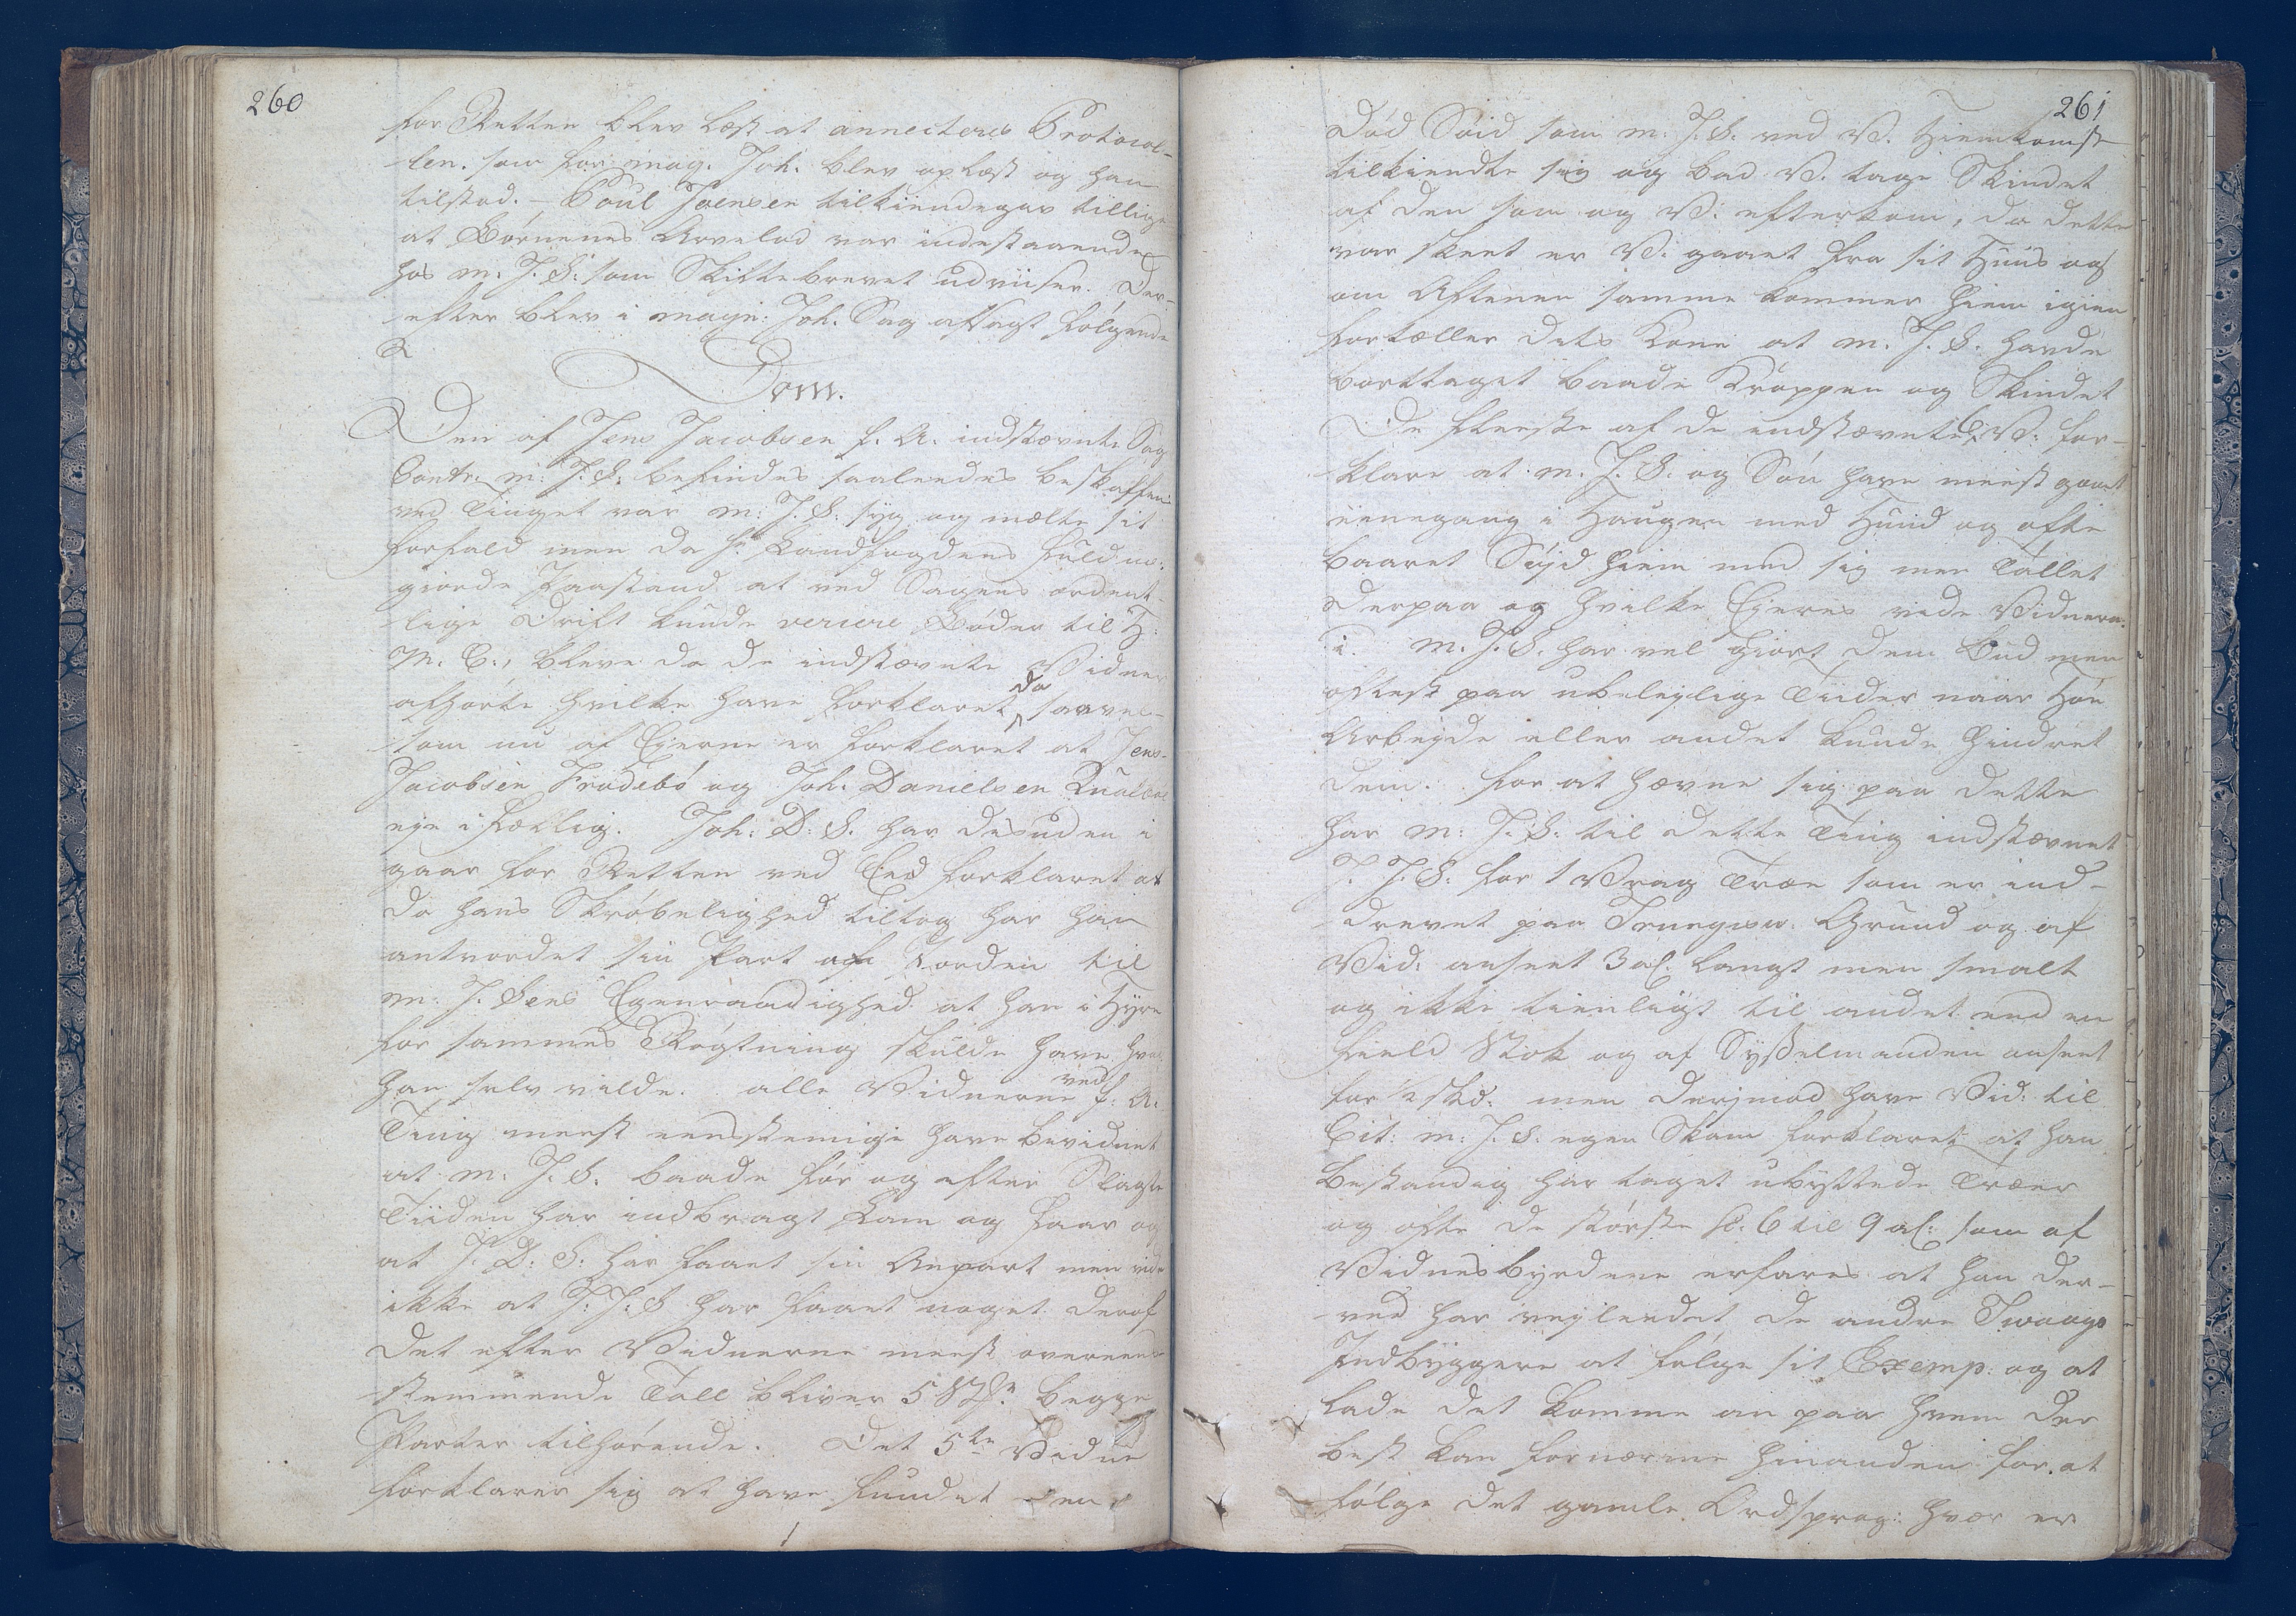 260
for Retten blev læst at annecteres Protocol-
len. som for mag. Joh. blev oplæst og han
tilstod. – Poul Joensen tilkiendegav tillige
at Børnenes Arvelod var indestaaende
hos m. J. S: som Skiftebrevet udviiser. Der-
efter blev i magn: Joh. Sag afsagt følgende
Dom.
Den af Jens Jacobsen f. A. indstævnte Sag
Contr. m: J. S. befindes saaledes beskaffen:
ved Tinget var m: J. S: syg og mælte sit
Forfald men da Hr Landfogdens fuldm:
giorde Paastand at ved Sagens ordent-
lige Drift kunde versere Bøder til H:
M. C:, bleve da de indstævnte Vidner
afhørte hvilke have forklaret da saavel-
som nu af Ejerne er forklaret at Jens
Jacobsen Frodebø og Joh. Danielsen Qualbøe
eje i fællig. Joh: D: S. har desuden i
gaar for Retten ved Eed forklaret at
da hans Skrøbelighed tiltog har han
antvordet sin Part af Jorden til
m: J. Sens Egenraadighed at han i Hyre
for sammes Røgtning skulde have hvad
han selv vilde. alle Vidnerne ved f: A:
Ting meest eensstemmige have bevidnet
at m. J. S. baade før og efter Slagte
Tiiden har indbragt Lam og Faar og
at J. D: S: har faaet sin Anpart men vide
ikke at J: J: S har faaet noget deraf
det efter Vidnerne meest overeens-
stemmende Tall bliver 5 Stkr begge
Parter tilhørende. Det 5te Vidne
forklarer sig at have fundet en
261
død Søid som m: J. S: ved V. Hiemkomst
tilkiendte sig og bad V. tage Skindet
af den som og V: efterkom, da dette
var skeet er V: gaaet fra sit Huus og
om Aftenen samme kommer hiem igien
fortæller dets Kone at m. J. S. havde
borttaget baade Kroppen og Skindet
De fleeste af de indstævnte V: for-
klare at m. J. S. og Søn have meest gaaet
eenegang i Haugen med Hund og ofte
baaret Søjd hiem med sig men Tallet
derpaa og hvilke Ejeres vide Vidnerne
i. m. J. S. har vel giort dem Bud men
oftest paa ubelejlige Tiider naar Høe
Arbejde eller andet kunde hindret
dem. for at hævne sig paa dette
har m: J. S: til dette Ting indstævnet
J. J. S: for 1 Vrag Træe som er ind-
drevet paa Grund og af
Vid: anseet 3 al: langt men smalt
og ikke tienligt til andet end en
field Stok og af Sysselmanden anseet
for ½ skd: men derimod have Vid: til
Cit: m: J. S: egen Skam forklaret at han
bestandig har taget ubyttede Træer
og ofte de største fr. 6 til 9 al: som af
Vidnesbyrdene erfares at han der-
ved har vejledet de andre Tvøroys
Indbyggere at følge sit Exemp: og at
lade det komme an paa hvem der
best kan fornærme hinanden for at
følge det gamle Ordsprog: hver er